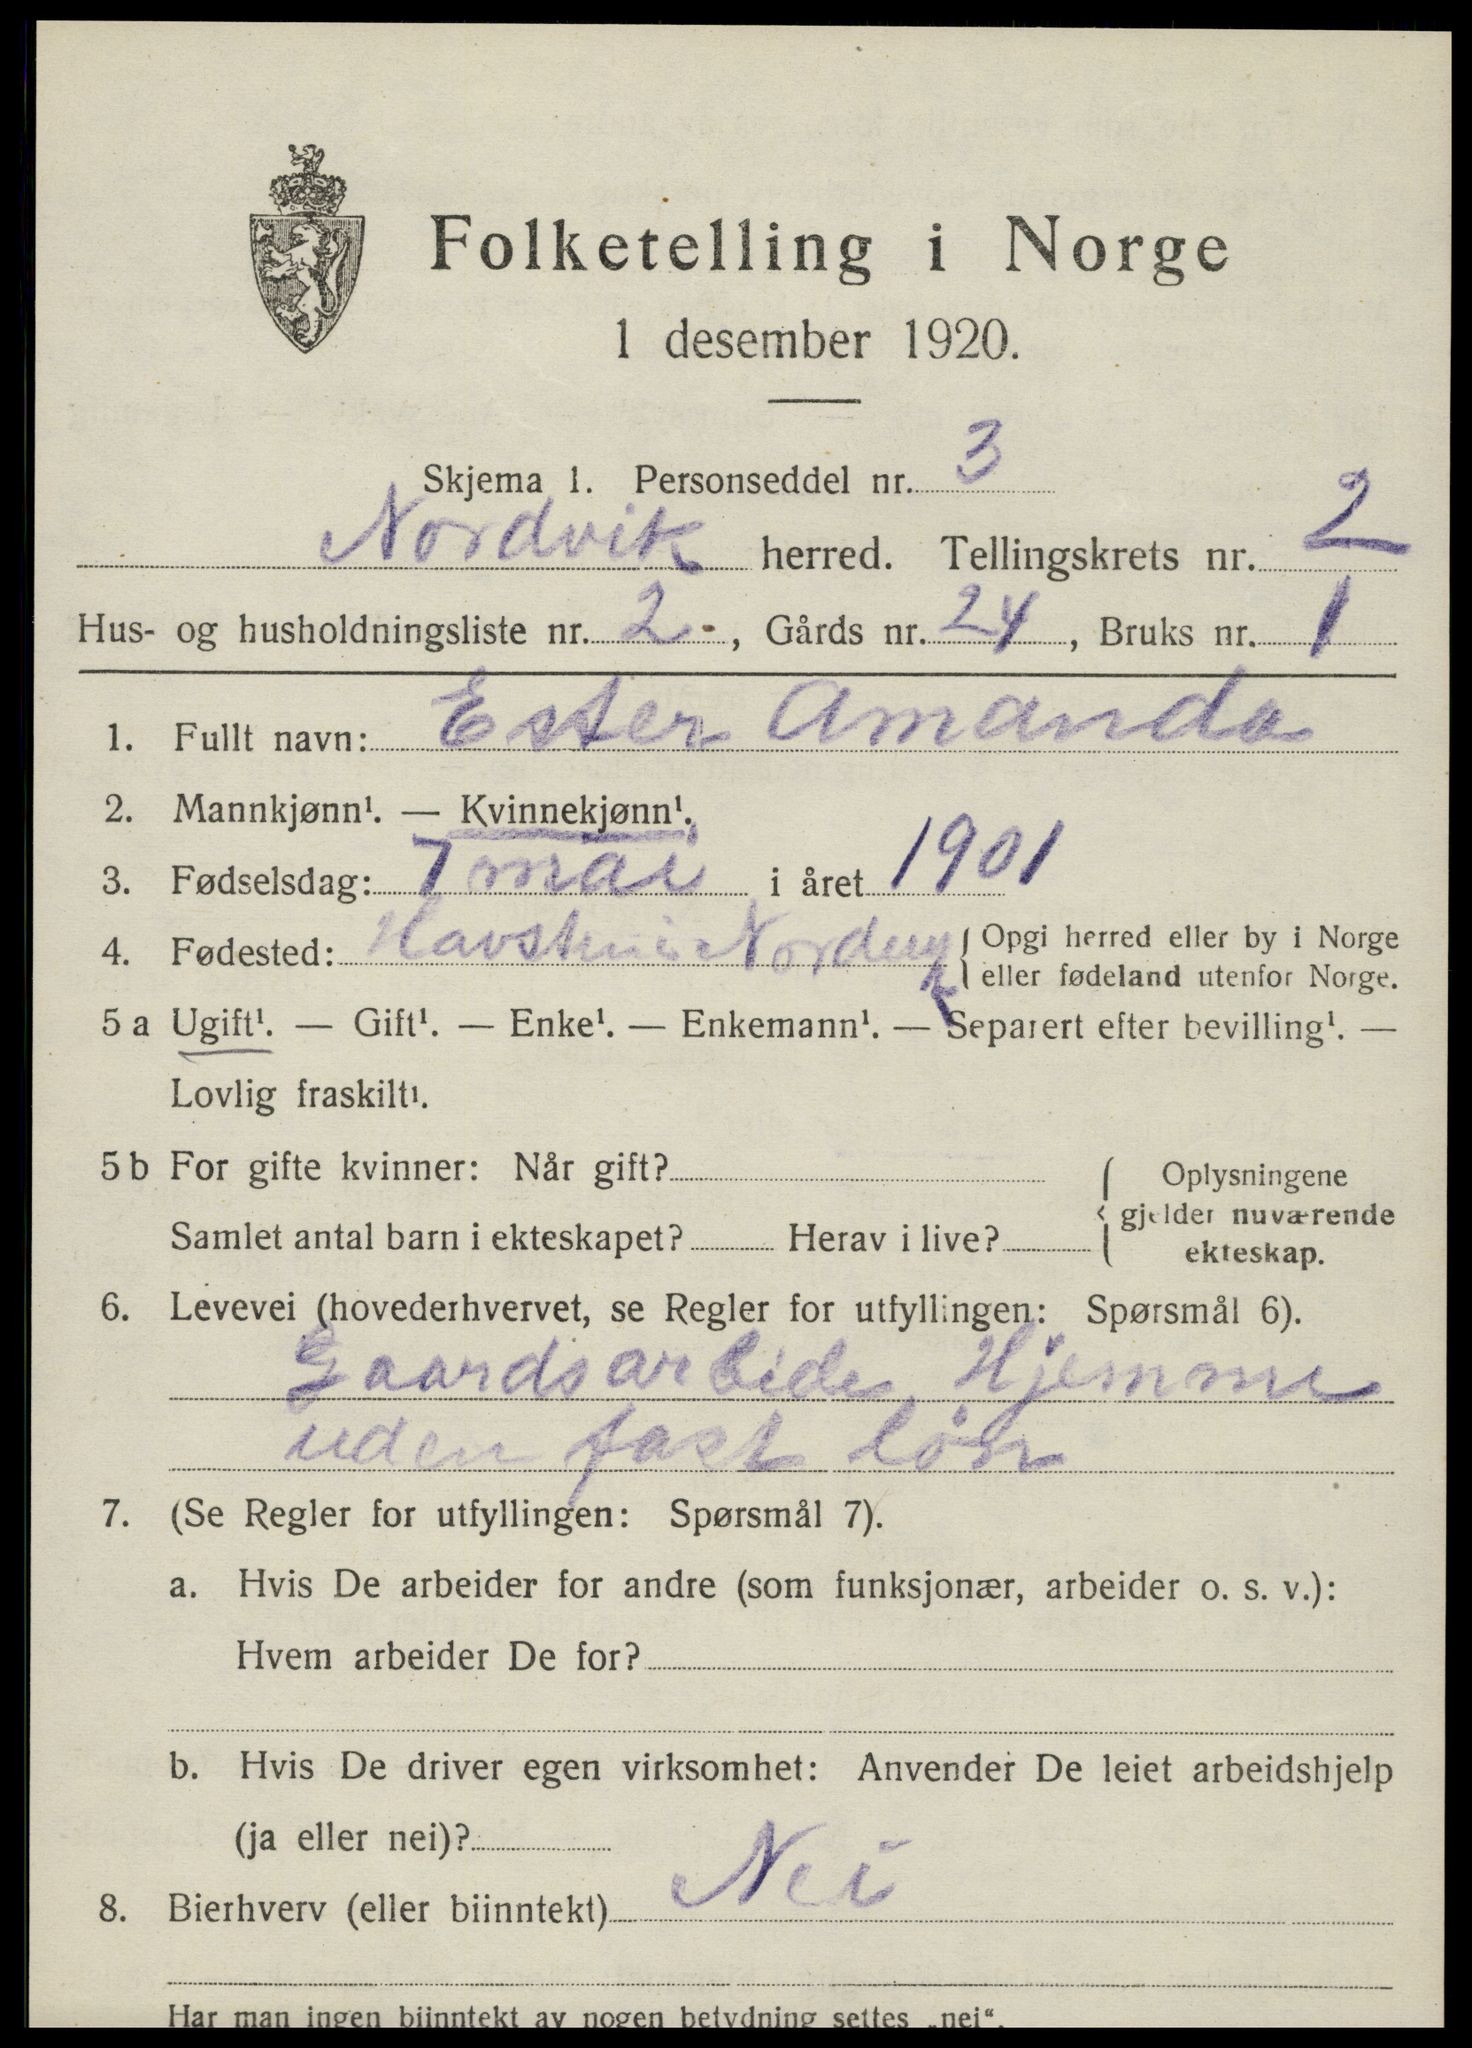 Folketelling i Norge
1 desember 1920.
Skjema 1. Personseddel nr. 3
Nordvik herred. Tellingskrets nr. 2
Hus- og husholdningsliste nr. 2, Gårds nr. 24, Bruks nr. 1
1. Fullt navn: Ester Amanda
2. Mannkjønn¹. — Kvinnekjønn¹.
3. Fødselsdag: 7 mai i året 1901
4. Fødested: { Opgi herred eller by i Norge
eller fødeland utenfor Norge.
5 a Ugift¹. — Gift¹. — Enke¹. — Enkemann¹. — Separert efter bevilling¹. —
Lovlig fraskilt¹.
5 b For gifte kvinner: Når gift? { Oplysningene
gjelder nuværende
Samlet antal barn i ekteskapet? Herav i live?
ekteskap.
6. Levevei (hovederhvervet, se Regler for utfyllingen: Spørsmål 6).
Gaardsarbeide Hjemme
uden fast løn
7. (Se Regler for utfyllingen: Spørsmål 7).
a. Hvis De arbeider for andre (som funksjonær, arbeider o. s. v.):
Hvem arbeider De for?
b. Hvis De driver egen virksomhet: Anvender De leiet arbeidshjelp
(ja eller nei)?
8. Bierhverv (eller biinntekt) Nei
Har man ingen biinntekt av nogen betydning settes „nei“.